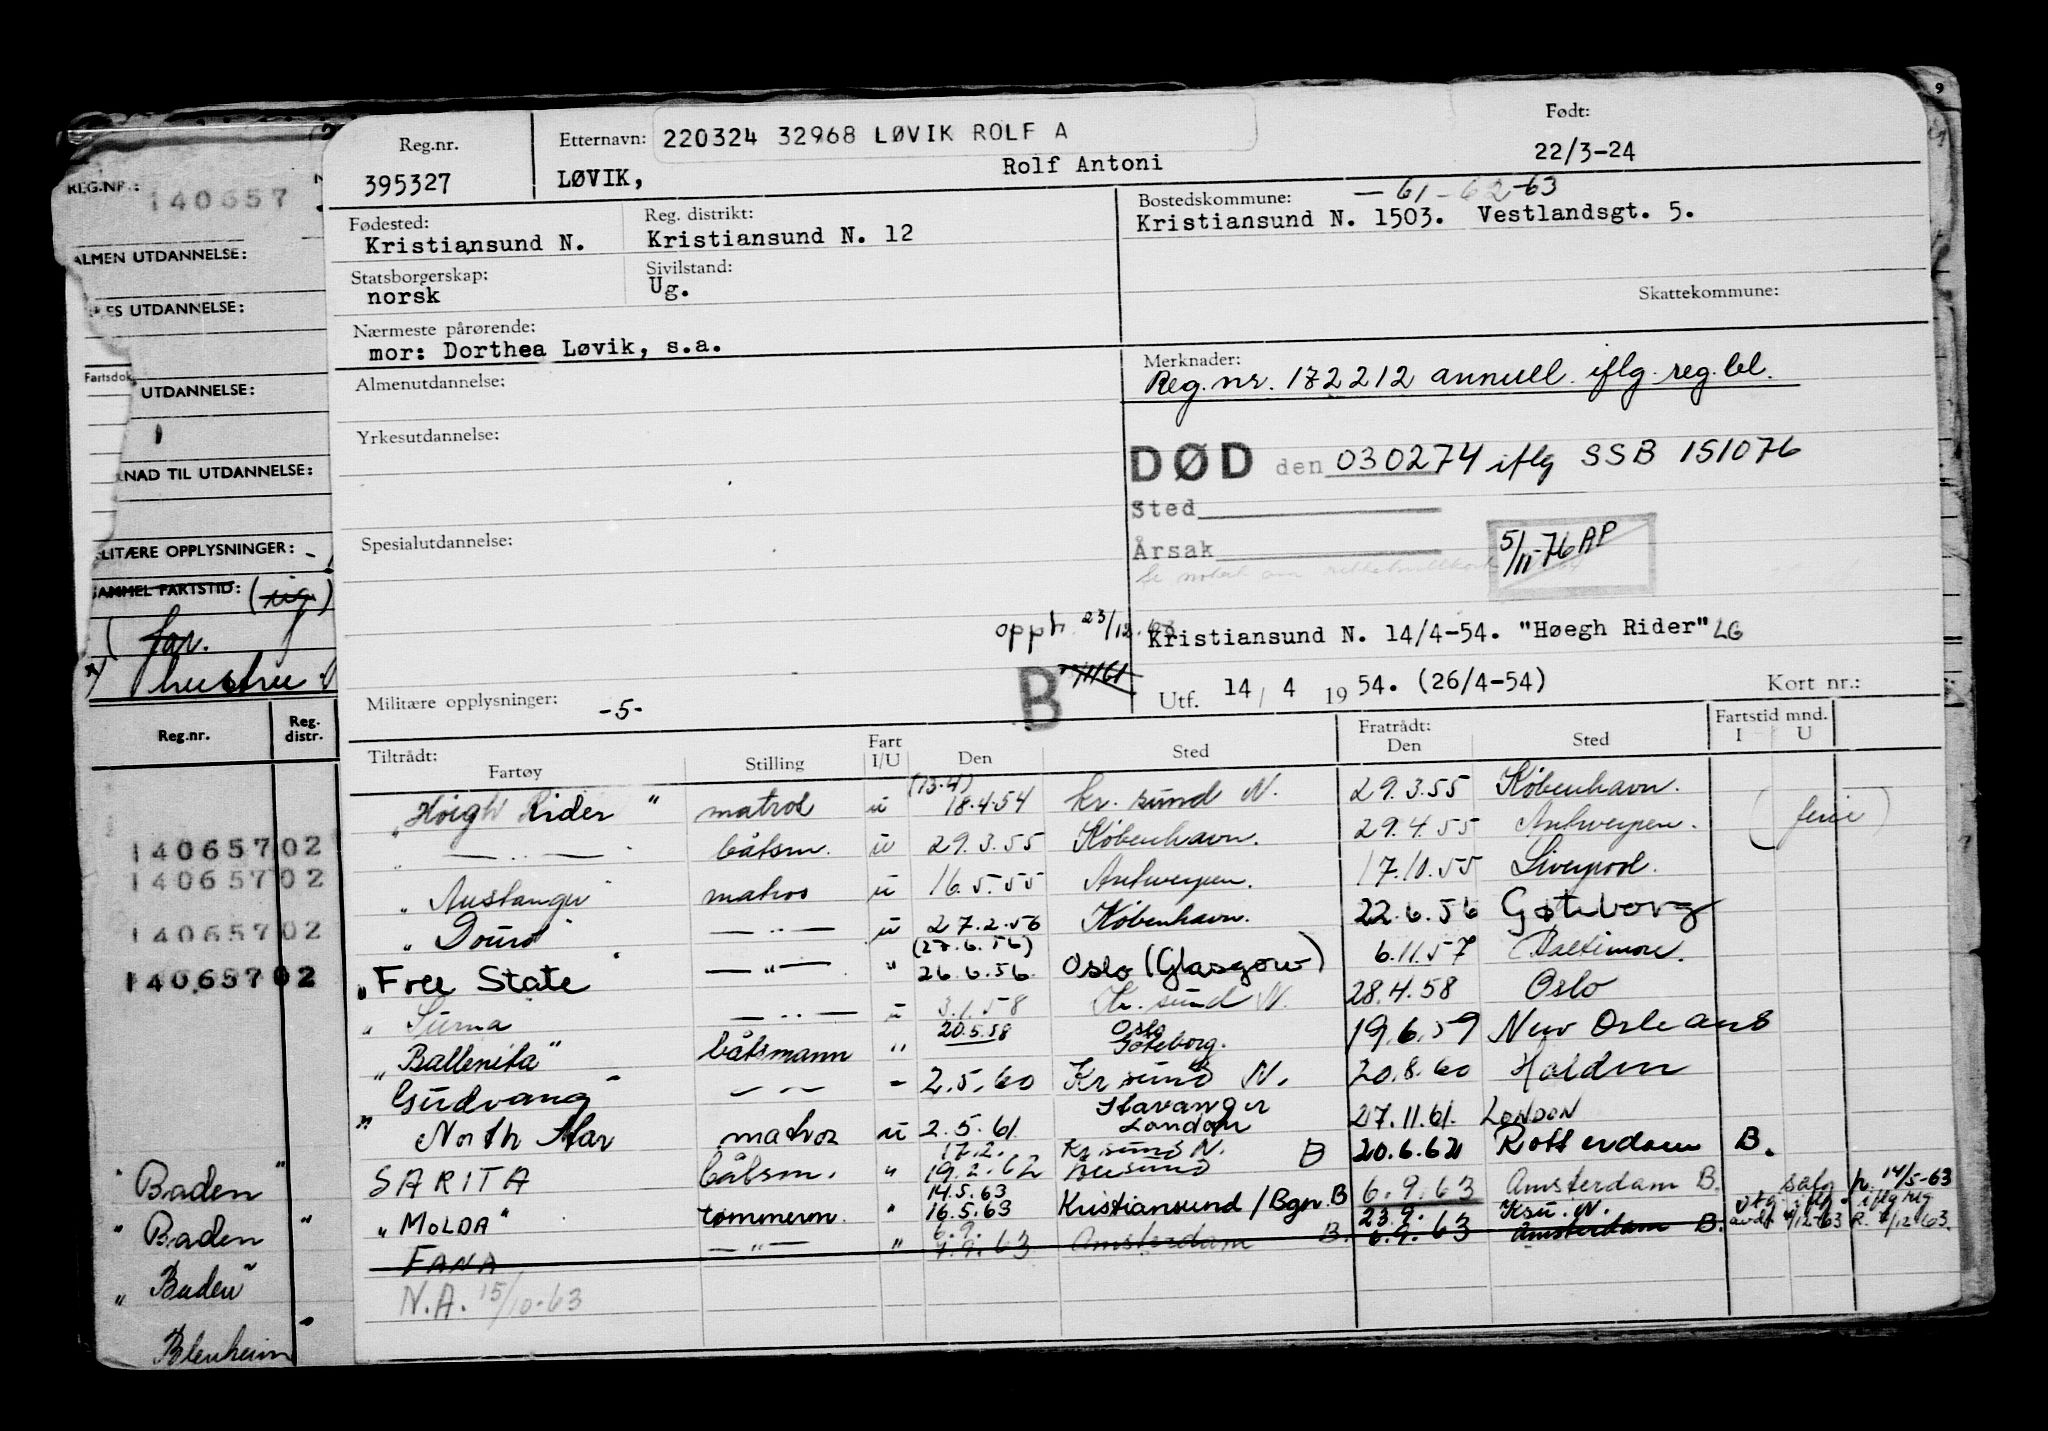 REG.NR.:
140657
ALMEN UTDANNELSE:
UTDANNELSE:
Fartsdok
UTDANNELSE:
NAD TIL UTDANNELSE:
LITÆRE OPPLYSNINGER:
SAMMEL FARTSTID: (ug)
( far.
hustru
Reg.nr. Reg. distr.
14065702
14065702
14065702
14065702
" Baden "
" Baden "
" Baden "
Blenheim
Reg.nr. Etternavn: 220324 32968 LØVIK ROLF A Født:
395327 LØVIK, Rolf Antoni 22/3-24
Fødested: Reg. distrikt: Bostedskommune: — 61 - 62 - 63
Kristiansund N. Kristiansund N. 12 Kristiansund N. 1503. Vestlandsgt. 5.
Statsborgerskap: Sivilstand:
norsk Ug. Skattekommune:
Nærmeste pårørende:
mor: Dorthea Løvik, s.a.
Merknader:
Reg.nr. 172212 annull. iflg. reg.bl.
Almenutdannelse:
Yrkesutdannelse:
DØD den 030274 iflg SSB 151076
Sted
Årsak
5/11-76 AP
Spesialutdannelse:
opph. 23/12.63
Kristiansund N. 14/4-54. "Høegh Rider" LG
B
Utf. 14 / 4 1954. (26/4-54) Kort nr.:
Militære opplysninger: -5-
Tiltrådt: Fratrådt: Fartstid mnd.
Fartøy Stilling Fart I/U Den Sted Den Sted I U
(13.4)
"Höigh Rider" matros u 18.4.54 Kr. sund N. 29.3.55 København.
" — " — båtsm. u 29.3.55 København. 29.4.55 Antwerpen. (ferie)
" Austanger matros u 16.5.55 Antwerpen. 17.10.55 Liverpool.
" Douro " — " — u 27.2.56 København. 22.6.56 Gøteborg
(27.6.56)
" Free State " — " — " 26.6.56. Oslo (Glasgow) 6.11.57 Baltimore.
" Surna — " — u 3.1.58 Kr. sund N. 28.4.58 Oslo
"Ballenita" båtsmann " 20.5.58 Oslo Göteborg. 19.6.59 New Orleans
" Gudvang " — " — " 2.5.60 Kr sund N. 20.8.60 Halden
" North Star matros u 2.5.61 Stavanger London 27.11.61. LONDON
17.2. Kr. sund N.
SARITA båtsm. " 19.2.62 B 20.6.62 Rotterdam B.
14.5.63
"MOLDA" tømmerm. " 16.5.63 Kristiansund / Bgn. B 6.9.63 Amsterdam B. p. 14/5-63
6.9. 23.9. Ksu. N.
FANA — " — " 7.9.63 Amsterdam B. 6.9.63 Amsterdam B. 4/12-63
N.A. 15/10-63